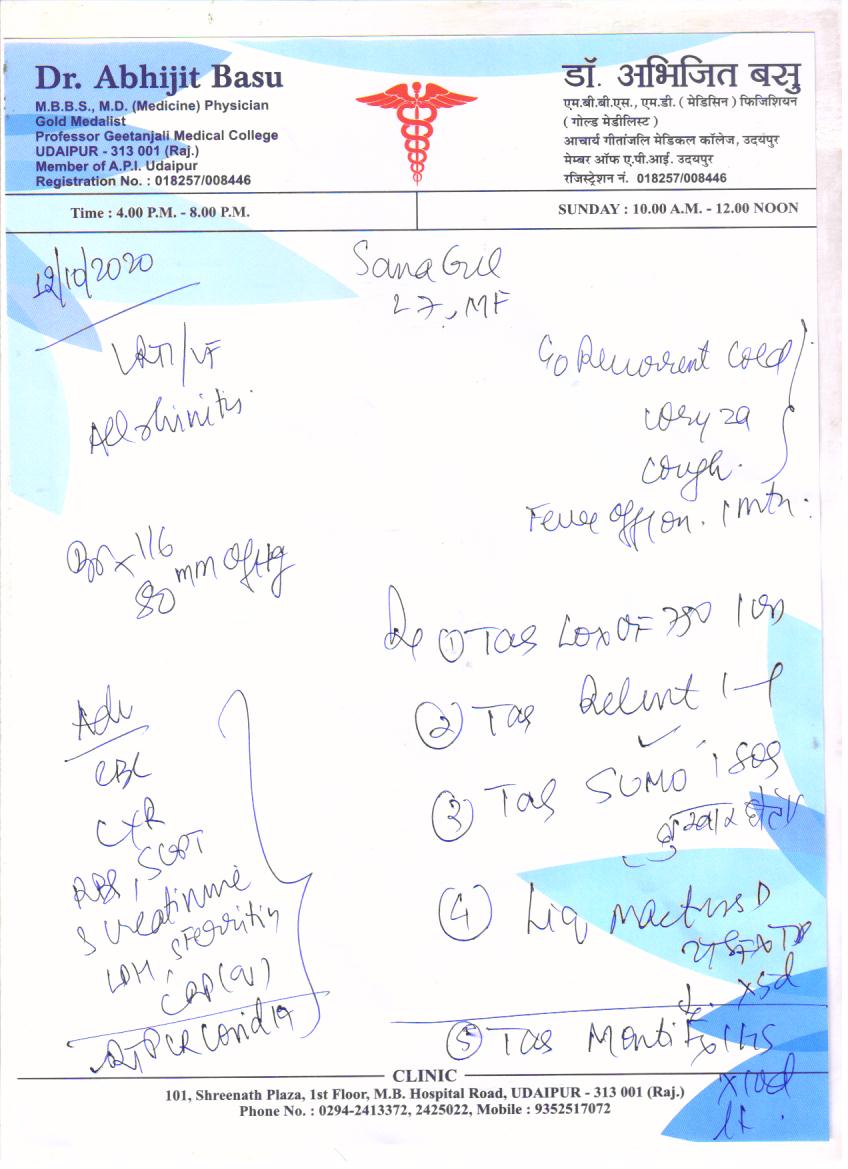 Dr. Abhijit Basu
M.B.B.S., M.D. (Medicine) Physician
Gold Medalist
Professor Geetanjali Medical College
UDAIPUR - 313 001 (Raj.)
Member of A.P.I. Udaipur
Registration No. : 018257/008446
डॉ. अभिजित बसु
एम.बी.बी.एस., एम.डी. ( मेडिसिन ) फिजिशियन
( गोल्ड मेडीलिस्ट )
आचार्य गीतांजलि मेडिकल कॉलेज, उदयपुर
मेम्बर ऑफ ए.पी.आई. उदयपुर
रजिस्ट्रेशन नं. 018257/008446
Time : 4.00 P.M. - 8.00 P.M.
SUNDAY : 10.00 A.M. - 12.00 NOON
12/10/2020
Sana Gul
27, MF
LRTI/VF
All rhinitis
C/o Recurrent cold
coryza
cough.
Fever off/on. 1 mtn.
116
80 mm of Hg
Adv
CBC
CXR
RBS, SGPT
S creatinine
LDH, S Ferritin
CRP (Q)
RTPCR Covid 19
Rx ① Tab LOXOF 750 1 OD
② Tab Relent 1-1
③ Tab SUMO 1 SOS
बुखार
④ Liq Mactuss D
x 5d
⑤ Tab Monti Fx 1 HS
x 10d
CLINIC
101, Shreenath Plaza, 1st Floor, M.B. Hospital Road, UDAIPUR - 313 001 (Raj.)
Phone No. : 0294-2413372, 2425022, Mobile : 9352517072